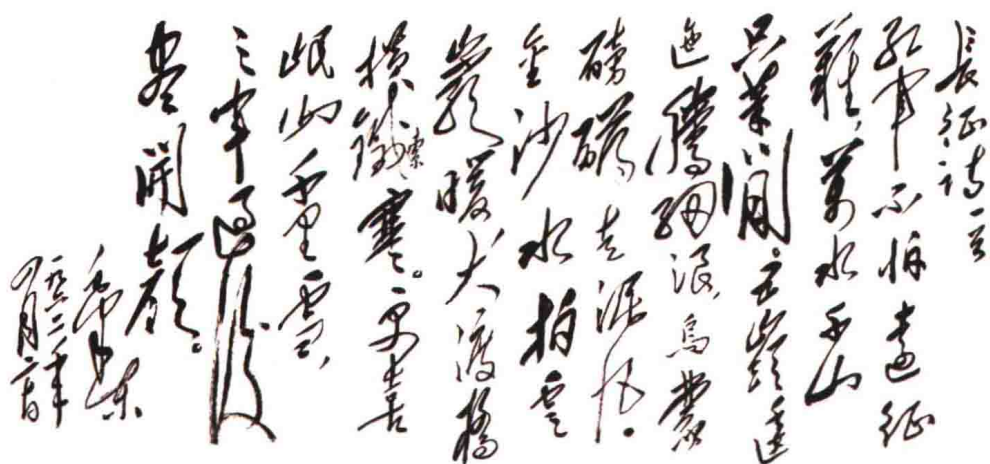 長征诗一首
红軍不怕遠征
難,萬水千山
只等閒。五嶺逶
迤騰細浪,烏蒙
磅礴走泥丸。
金沙水拍雲
巖暖大渡橋
横鐵索寒。更喜
岷山千里雪,
三軍過後
盡開顔。
毛澤東
一九六二年
四月二十日